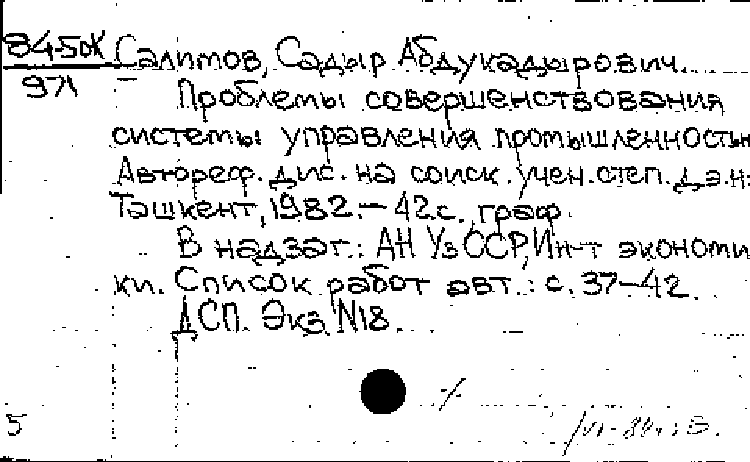 84-5ОК
971
Салимов, Садыр Абдукадырович.
Проблемы совершенствования
системы управления промышленностью
Автореф. дис. на соиск. учен. степ. д.э.н:
Ташкент, 1982. – 42 с., граф.
В надзаг.: АН УзССР, Ин-т экономи
ки. Список работ авт.: с. 37–42.
ДСП. Экз. N18.
5